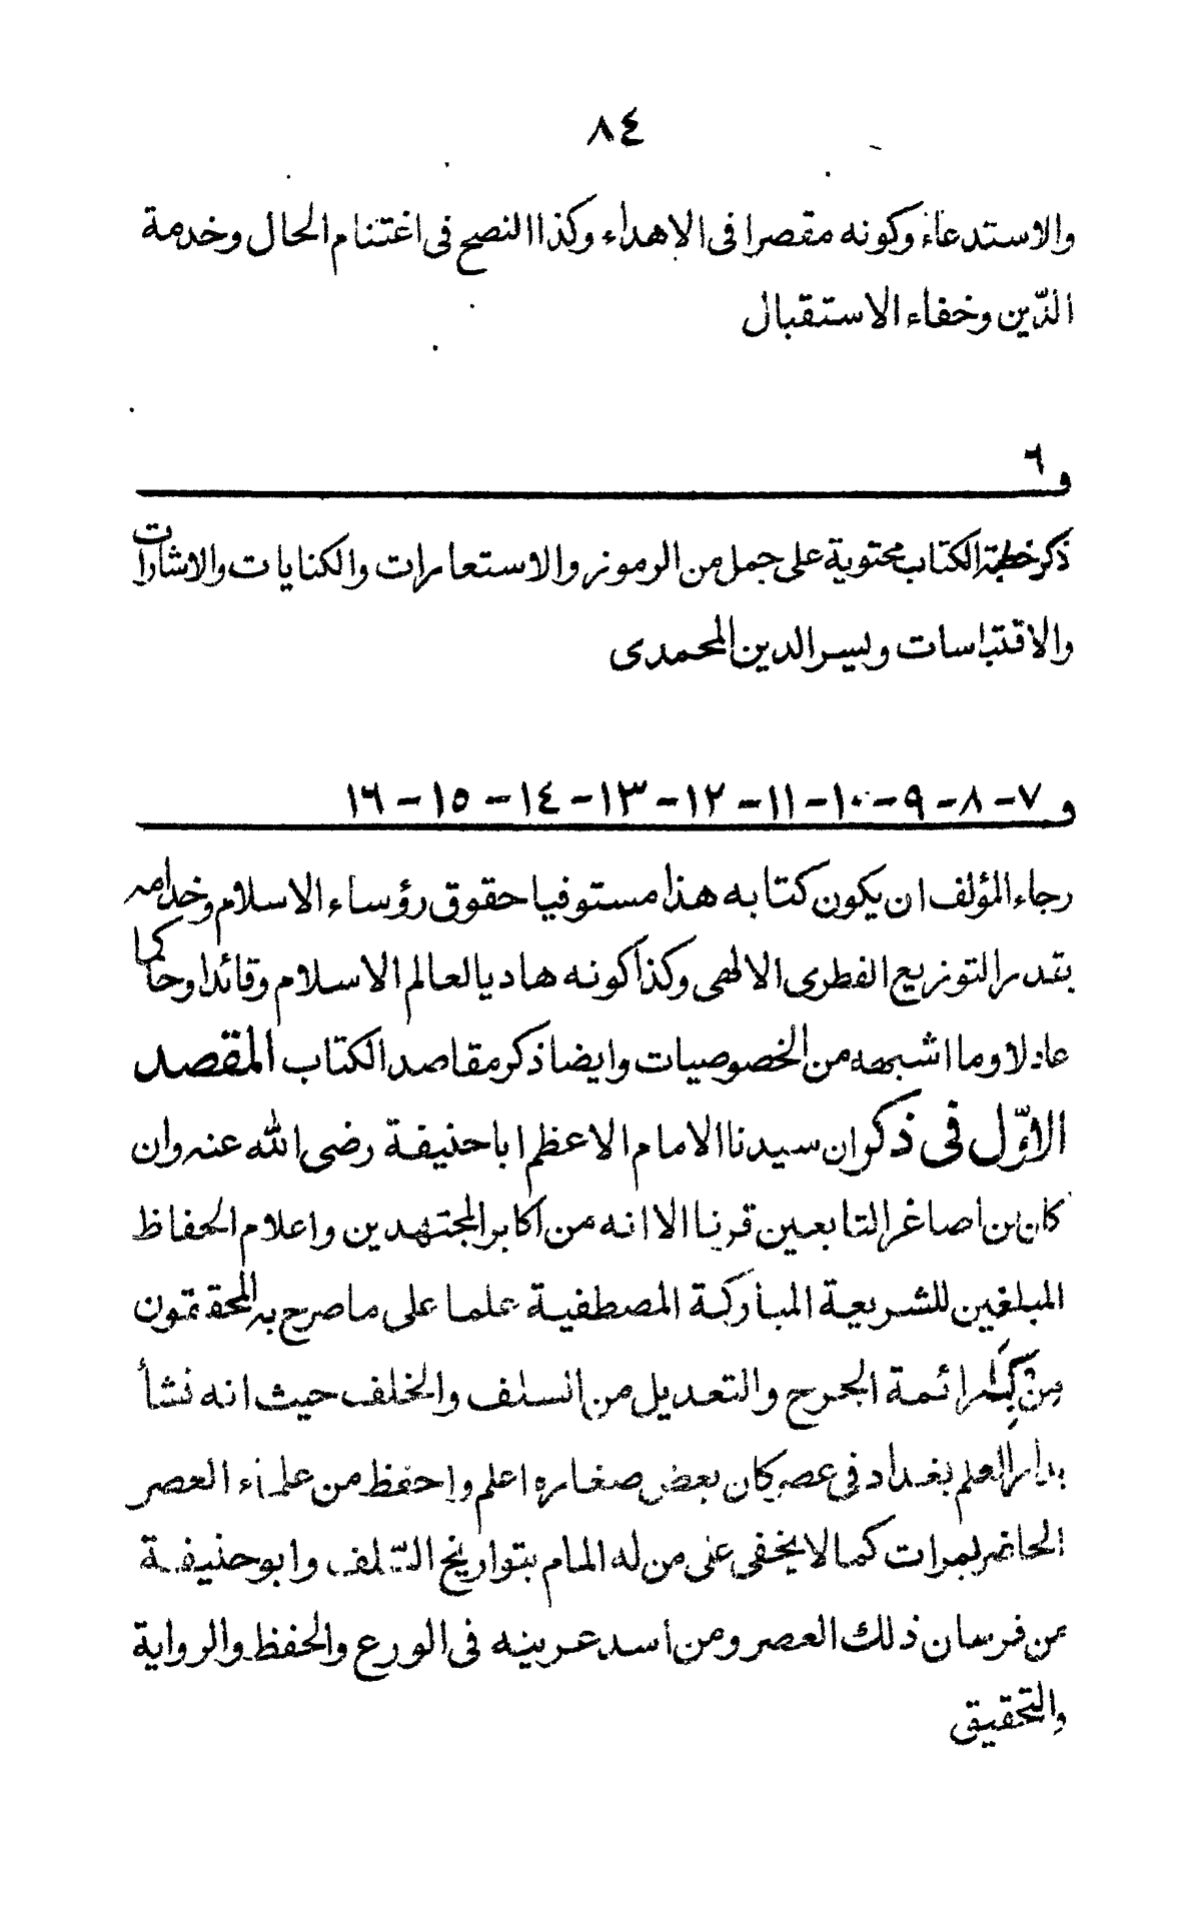 ٨٤
والاستدعاء وكونه مقصرا فى الاهداء وكذا النصح فى اغتنام الحال وخدمة
الدّين وخفاء الاستقبال
و ٦
ذكر خطبة الكتاب محتوية على جمل من الرموز والاستعارات والكنايات والاشارات
والاقتباسات ويسر الدين المحمدى
و ٧-٨-٩-١٠-١١-١٢-١٣-١٤-١٥-١٦
رجاء المؤلف ان يكون كتابه هذا مستوفيا حقوق رؤساء الاسلام وخدامه
بقدر التوزيع الفطرى الالهى وكذا كونه هاديا لعالم الاسلام وقائدا وحاكما
عادلا وما اشبهه من الخصوصيات وايضا ذكر مقاصد الكتاب المقصد
الاوّل فى ذكر ان سيدنا الامام الاعظم ابا حنيفة رضى الله عنه وان
كان من اصاغر التابعين قرنا الا انه من اكابر المجتهدين واعلام الحفاظ
المبلغين للشريعة المباركة المصطفية علما على ما صرح به المحققون
من كبار ائمة الجرح والتعديل من السلف والخلف حيث انه نشأ
بدار العلم بغداد فى عصر كان بعض صغاره اعلم واحفظ من علماء العصر
الحاضر بمرات كما لا يخفى على من له المام بتواريخ السّلف وابو حنيفة
من فرسان ذلك العصر ومن اسد عرينه فى الورع والحفظ والرواية
والتحقيق